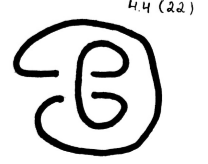 4.4 (22)